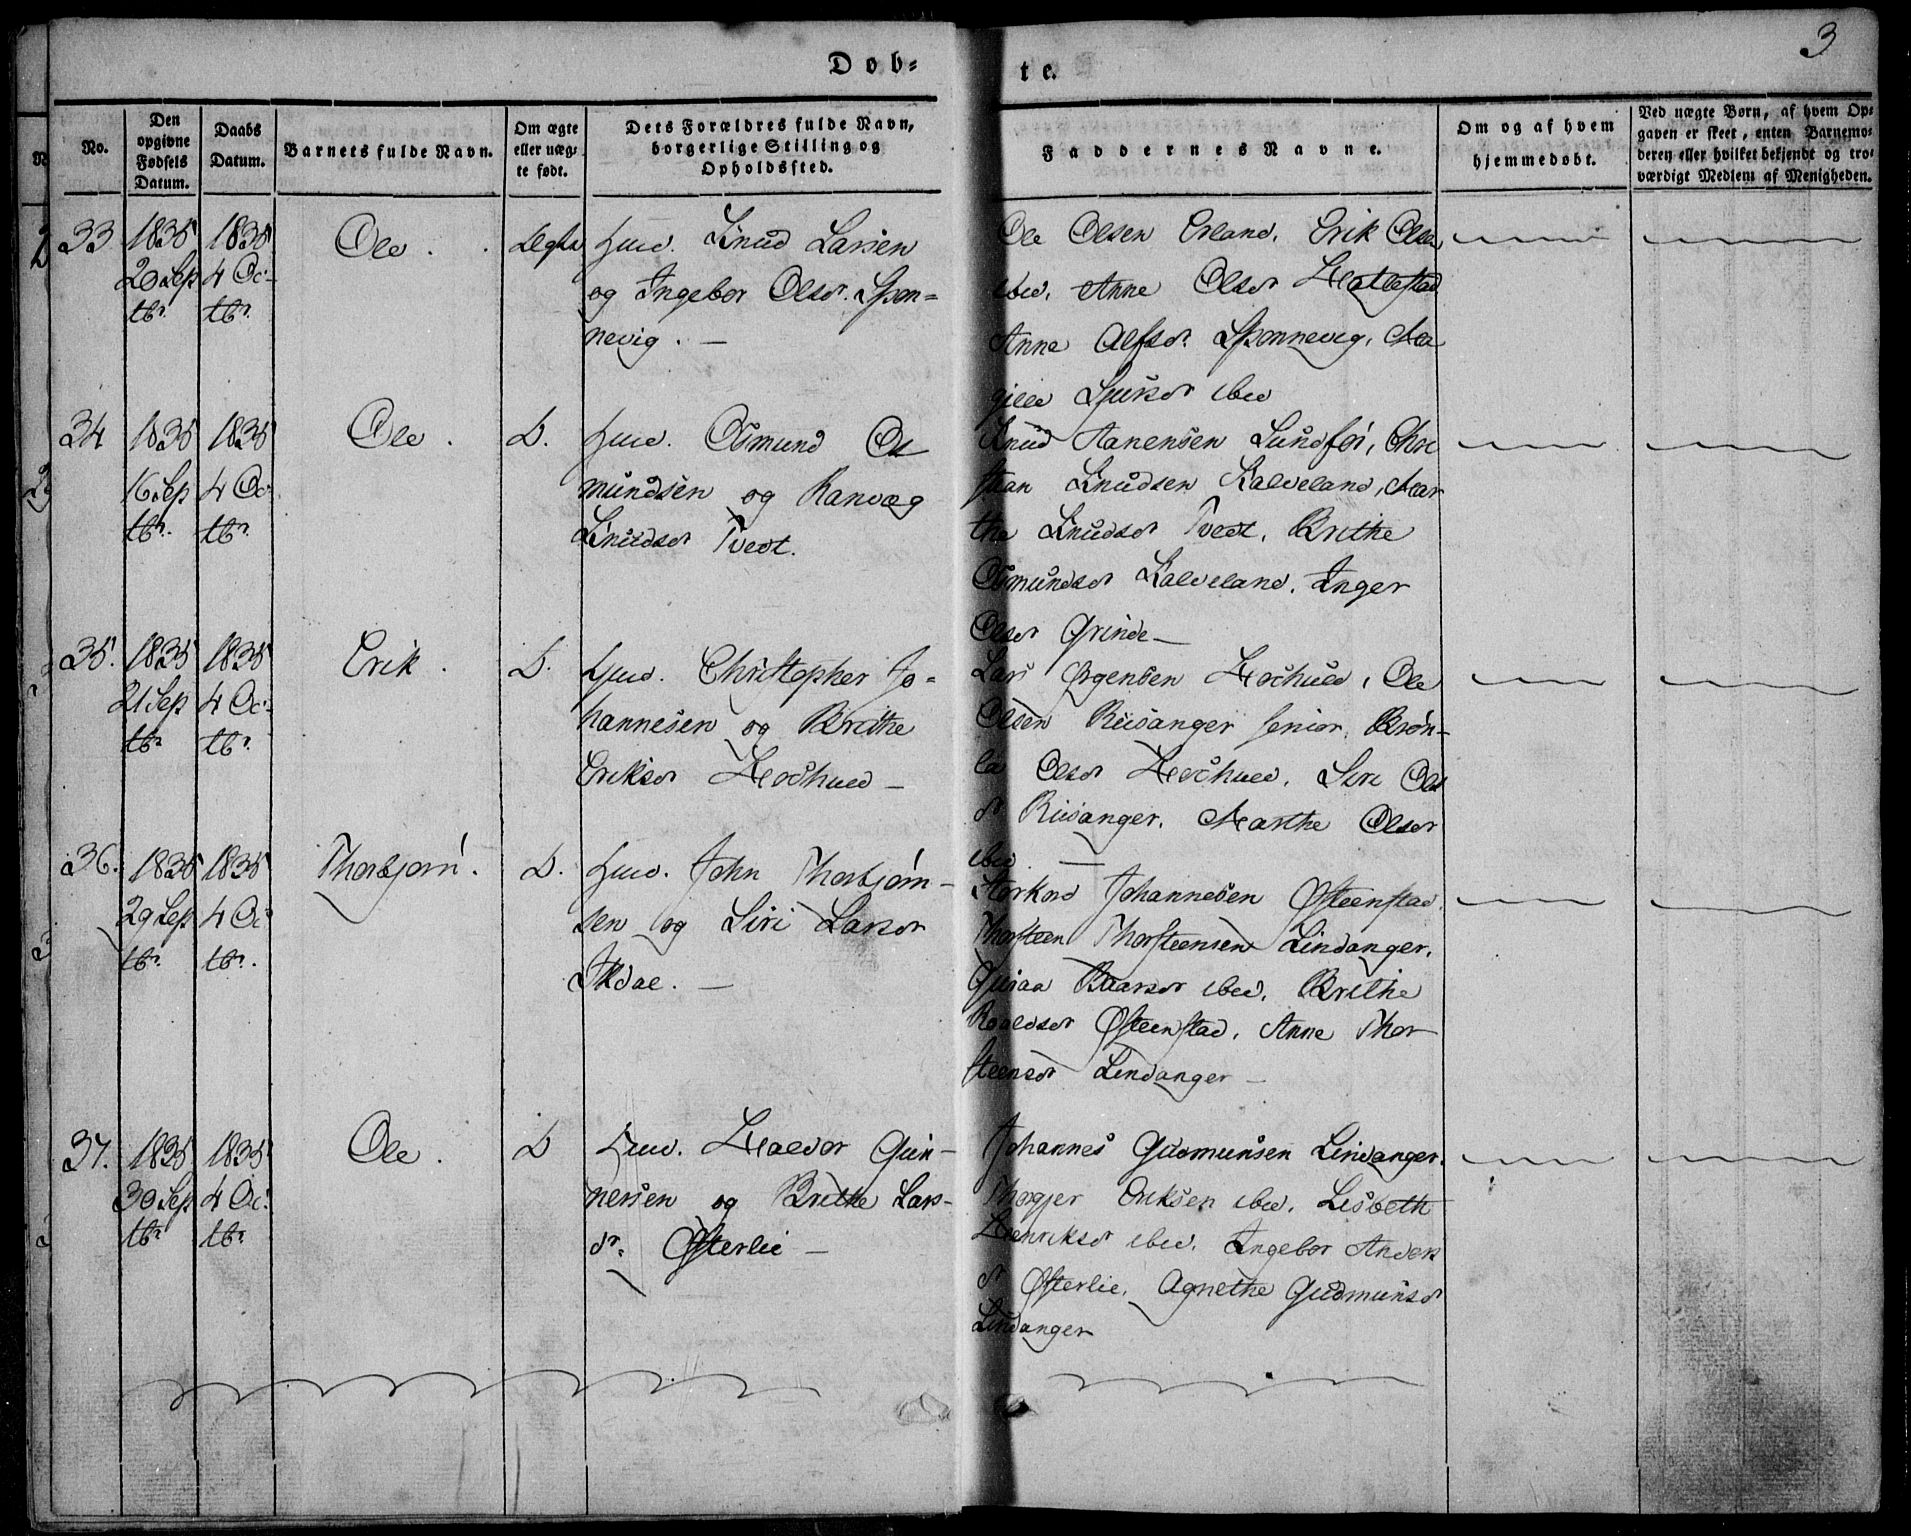 3
Døb- te.
No.
Den opgivne Fødsels Datum.
Daabs Datum.
Barnets fulde Navn.
Om ægte eller uægte født.
Dets Forældres fulde Navn, borgerlige Stilling og Opholdssted.
Faddernes Navne.
Om og af hvem hjemmedøbt.
Ved uægte Børn, af hvem Opgaven er skeet, enten Barnemoderen eller hvilket bekjendt og troværdigt Medlem af Menigheden.
33
1835
20 Sep
tbr.
1835
4 Oc-
tbr.
Ole.
Ægte
Huud. Knud Larsen
og Ingebor Olsdr. Spon-
nevig. —
Ole Olsen Erland, Erik Olsen
ibid, Anne Olsdr Hattestad
Anne Alfsdr. Sponnevig, Ma
ibid
34
1835
16 Sep
tbr.
1835
4 Oc
tbr.
Ole.
D.
Huud. Osmund Os
mundsen og Ranvæg
Knudsdr Tvedt.
Knud Aanensen Sundfør, Chri
stian Knudsen Kalveland, Mar
the Knudsdr Tvedt, Brithe
Osmundsdr Kalveland, Inger
Olsdr Grinde —
35.
1835
21 Sep
tbr
1835
4 Oc-
tbr.
Erik.
D.
Huud. Christopher Jo-
hannesen og Brithe
Eriksdr —
Lars Ørgensen Ole
Olsen Riisanger senior, Brøn-
la Olsdr Siri Ols
dr Riisanger, Marthe Olsdr
ibid. —
36.
1835
29 Sep
tbr.
1835
4 Oc
tbr.
Thorbjørn.
D.
Huud. John Thorbjørn-
sen og Siri Larsdr
—
Storkord Johannesen Østeenstad,
Thorsteen Thorsteensen Lindanger,
Guroa Baarsdr ibid, Brithe
Roaldsdr Østeenstad, Anne Thor
steensdr Lindanger —
37.
1835
30 Sep
tbr
1835
4 Oc-
tbr.
Ole.
D
Huud. Halvor Gun-
nersen og Brithe Lars-
dr. Østerlie —
Johannes Gudmunsen Lindanger,
Thorgjer Eriksen ibid, Lisbeth
Henriksdr ibid, Ingebor Anders
dr Østerlie, Agnethe Gudmunsdr
Lindanger